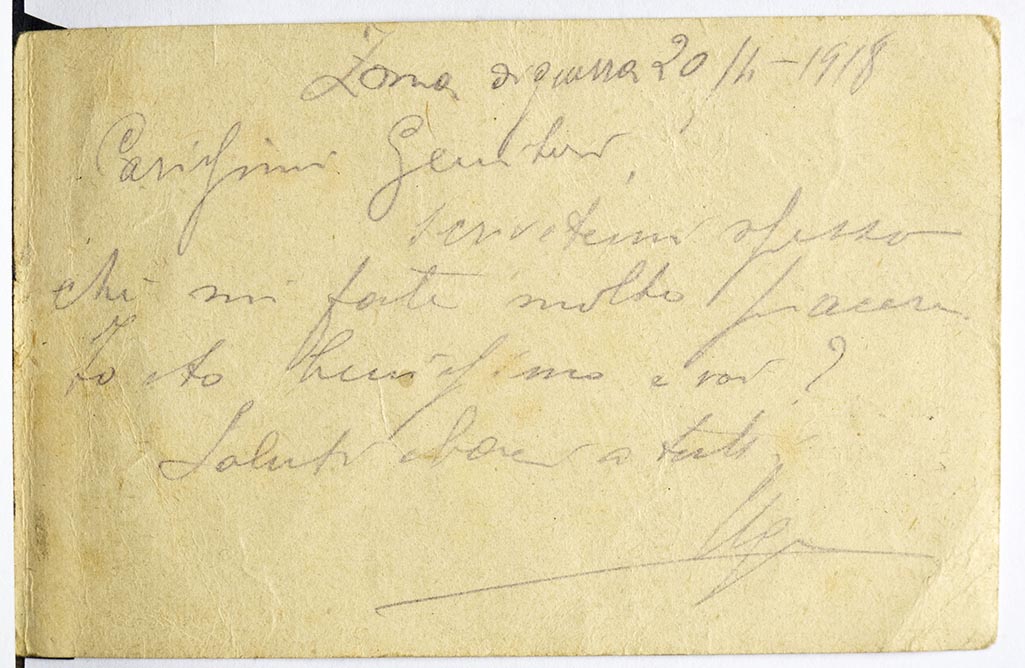 Zona di guerra 20/4-1918
Carissimi Genitori,
scrivetemi spesso
che mi fate molto piacere.
Io sto benissimo e voi?
Saluti e baci a tutti
Ugo